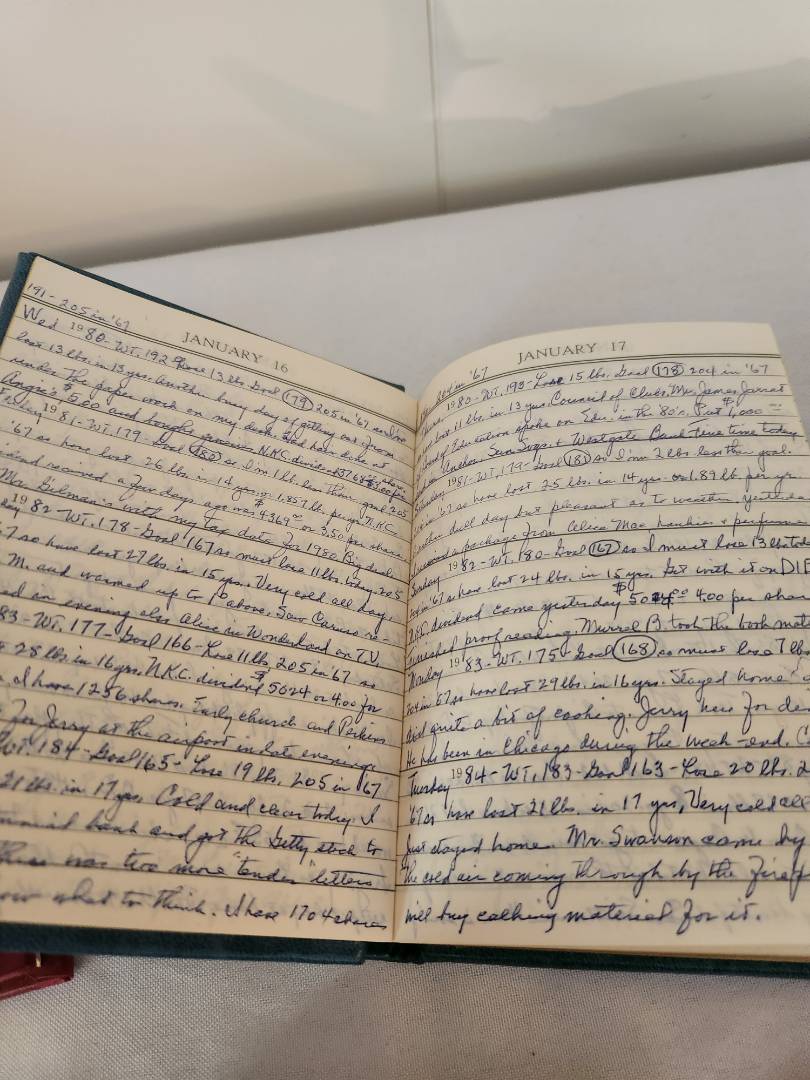 191 - 205 in '67
JANUARY 16
Wed 1980 - WT. 192 Lose 13 lbs. Goal 179 205 in '67 so have
lost 13 lbs. in 13 yrs. Another busy day of getting out from
under the paper work on my desk. Had hair done at
Angie's $5.00 and bought groceries N.K.C. dividend
Friday 1981 - WT. 179 - Goal 180 so I'm 1 lb. less than goal 205
'67 so have lost 26 lbs. in 14 yrs. or 1.857 lb. per yr. N.K.C.
received a few days ago was $4369 or 3.50 per share
Mr. Gilman's with my tax data for 1980 Big deal
1982 - WT. 178 - Goal 167 so must lose 11 lbs. today - 205
'67 so have lost 27 lbs. in 15 yrs. Very cold all day,
M. and warmed up to 1° above. Saw
in evening also Alice in Wonderland on T.V.
83 - WT. 177 - Goal 166 - Lose 11 lbs. 205 in '67 so
28 lbs in 16 yrs. N.K.C. dividend $5024 or 4.00 for
I have 1256 shares. Early church and Perkins
for Jerry at the airport in late evening
WT. 184 - Goal 165 - Lose 19 lbs. 205 in '67
21 lbs. in 17 yrs. Cold and clear today. I
bank and got the Getty stock to
was two more "tender" letters
what to think. I have 1704 shares
in '67
JANUARY 17
1980 - WT. 193 - Lose 15 lbs. Goal 178 204 in '67
lost 11 lbs. in 13 yrs. Council of Clubs, Mr. James Jarrat
of Education spoke on Edu. in the '80's. Put $1,000
Westgate Bank Fine time today
Saturday 1981 - WT. 179 - Goal 181 so I'm 2 lbs less the goal.
in '67 so have lost 25 lbs. in 14 yrs. or 1.89 lb per yr.
dull day but pleasant as to weather yesterday
received a package from Alice Mae, hankies + perfume
Sunday 1982 - WT. 180 - Goal 167 so I must lose 13 lbs today
in '67 so have lost 24 lbs. in 15 yrs. Get with it on DIE
N.K.C. dividend came yesterday $5024 4.00 per share
Finished proof reading. Murrel B. took the book mate
Monday 1983 - WT. 175 - Goal 168 so must lose 7 lbs
204 in '67 so have lost 29 lbs. in 16 yrs. Stayed home
did quite a bit of cooking. Jerry here for
He has been in Chicago during the week-end.
Tuesday 1984 - WT. 183 - Goal 163 - Lose 20 lbs. 2
'67 so have lost 21 lbs. in 17 yrs, Very cold all
Just stayed home. Mr. Swanson came by
the cold air coming through by the firep
will buy calking material for it.